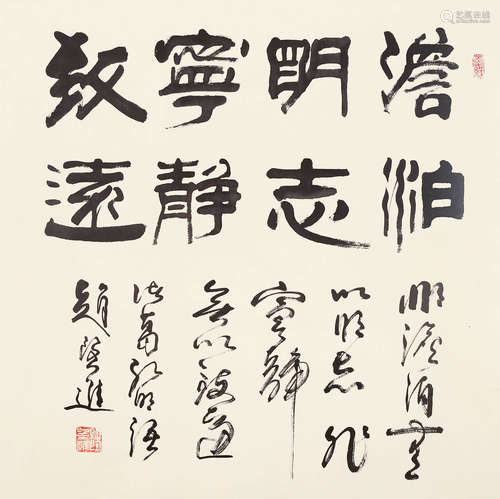 澹泊
明志
寧靜
致遠
非澹泊無
以明志非
寧靜
無以致遠
諸葛孔明語
趙望進